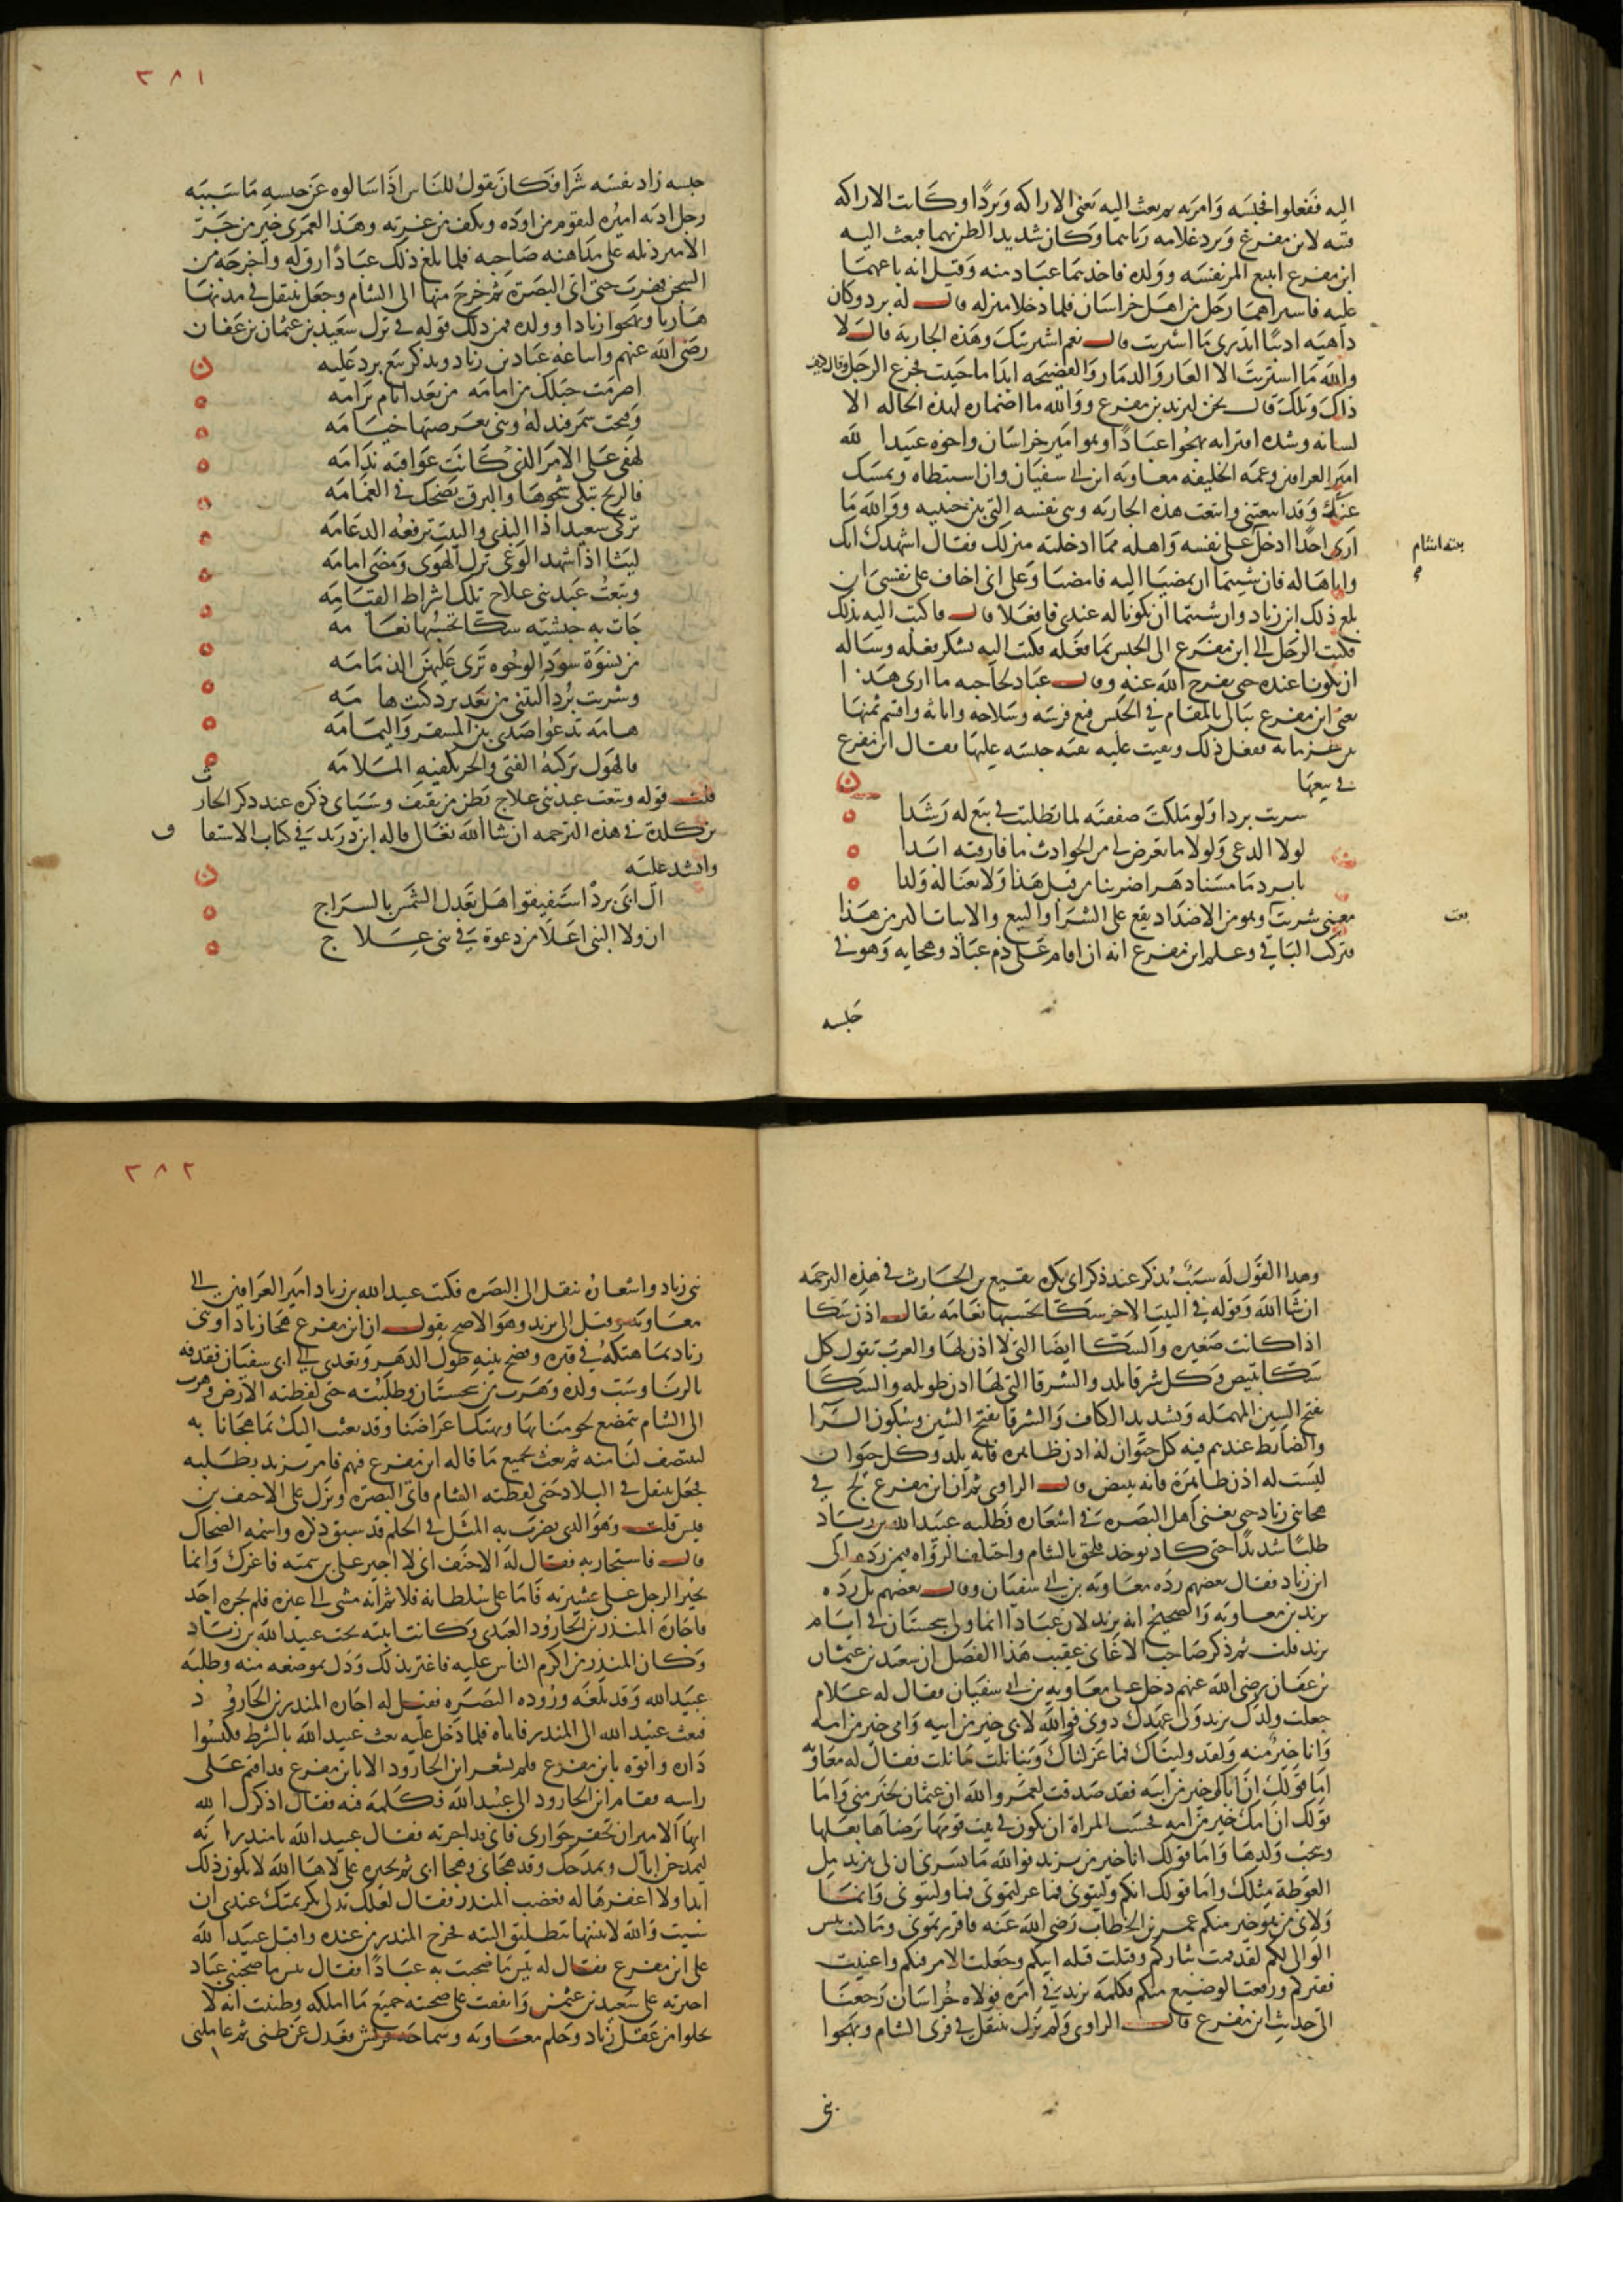 اليه ففعلوا فحبسه وامر به ثم بعث اليه بعنى الاراكه وبردا وكانت الاراكه
قينه لابن مفرغ وبرد غلامه رباهما وكان شديد الظن بهما فبعث اليه
ابن مفرع ايبيع المر نفسه وولده فاخذهما عباد منه وقيل انه باعهما
عليه فاسراهما رجل من اهل خراسان فلما دخلا منزله قال له برد وكان
داهيه اديبا اتدرى ما اشريت قال نعم اشريتك وهذه الجاريه قال لا
والله ما اشتريت الا العار والدمار والفضيحه ابدا ما حييت فجزع الرجل وقال كيف
ذاك ويلك قال نحن ليزيد بن مفرع ووالله ما اصاره لهذه الحاله الا
لسانه وشده افترابه يهجوا عبادا وهو امير خراسان واخوه عبيدا لله
امير العراقين وعمه الخليفه معاويه ابن ابى سفيان وان استبطاه ويمسك
عنك وقد ابتعتنى وابتعت هذه الجاريه وهى نفسه التى بين جنبيه ووالله ما
ارى احدا ادخل على نفسه واهله مما ادخلته منزلك فقال اشهدك انك
بيته اشام
واياها له فان شيتما ان تمضيا اليه فامضيا وعلى انى اخاف على نفسى ان
بلغ ذلك ابن زياد وان شيتما ان تكونا له عندى فافعلا قال فاكتب اليه بذلك
فكتب الرجل الى ابن مفرع الى الحبس بما فعله فكتب اليه يشكر فعله وساله
ان يكونا عنده حتى يفرج الله عنه وقال عباد لحاجبه ما ارى هذا
يعنى ابن مفرع يبالى بالمقام في الحبس فبع فرسه وسلاحه واثاثه واقسم ثمنها
بين غرمايه ففعل ذلك وبقيت عليه بقيه حبسه عليها فقال ابن مفرغ
في بيعها
شريت بردا ولو ملكت صفقته لما تطلبت في بيع له رشدا
لولا الدعى ولولا ما تعرض لى من الحوادث ما فارقته ابدا
يا برد ما مسنا دهر اضر بنا من قبل هذا ولا بعنا له ولدا
معنى شريت وهو من الاضداد يقع على الشرا والبيع والابيات اكثر من هذا
بعت
فتركت الباقى وعلم ابن مفرع انه ان اقام على ذم عباد وهجايه وهو في
حبسه
٣٨١
حبسه زاد نفسه شرا فكان يقول للناس اذا سالوه عن حبسه ما سببه
رجل ادبه اميره ليقوم من اوده ويكف من غربه وهذا لعمرى خير من جر
الامير ذيله على مداهنه صاحبه فلما بلغ ذلك عبادا رق له واخرجه من
السجن فهرب حتى اتى البصره ثم خرج منها الى الشام وجعل يتنقل في مدنها
هاربا ويهجوا زيادا وولده فمن ذلك قوله في ترك سعيد بن عثمان بن عفان
رضى الله عنهم واتباعه عباد بن زياد ويذكر بيع برد عليه
اصرمت حبلك من امامه من بعد ايام برامه
وفتحت سمرقند له وبنى بعرصتها خيامه
لهفى على الامر الذى كانت عواقبه ندامه
فالريح تبكى شجوها والبرق يضحك في الغمامه
تركى سعيدا ذا الندى والبيت ترفعه الدعامه
ليثا اذا شهد الوغى ترك الهوى ومضى امامه
وتبعت عبد بنى علاج تلك اشراط القيامه
جات به حبشيه سكا تحسبها نعامه
من نسوة سود الوجوه ترى عليهن الدمامه
وشريت بردا ليتنى من بعد برد كنت هامه
هامه تدعوا صدى بين المسقر واليمامه
فالهول يركبه الفتى والحر تكفيه الملامه
قلت قوله وتبعت عبد بنى علاج بطن من ثقيف وسياتى ذكره عند ذكر الحارث
بن كلدة في هذه الترجمه ان شا الله تعالى قاله ابن دريد في كتاب الاشتقاق
وانشد عليه
ال ابى برد استفيقوا هل تعدل الشمس بالسراج
ان ولا النبى اعلا من دعوة في بنى علاج
وهذا القول له سبب يذكر عند ذكر ابى بكره نفيع بن الحارث في هذه الترجمه
ان شا الله وقوله في البيت الاخر سكا تحسبها نعامه يقال اذن سكا
اذا كانت صغيره والسكا ايضا التى لا اذن لها والعرب تقول كل
سكا تبيض وكل شرفا تلد والشرفا التى لها اذن طويله والسكا
بفتح السين المهمله وتشديد الكاف والشرفا بفتح الشين وسكون الرا
والضابط عندهم فيه كل حيوان له اذن ظاهره فانه يلد وكل حيوان
ليست له اذن ظاهرة فانه يبيض قال الراوى ثم ان ابن مفرع لج في
هجا بنى زياد حتى تغنى اهل البصره في اشعاره فطلبه عبيد الله بن زياد
طلبا شديدا حتى كاد يوخذ فلحق بالشام واختلف الرواه فيمن رده الى
ابن زياد فقال بعضهم رده معاويه بن ابى سفيان وقال بعضهم بل رده
يزيد بن معاويه والصحيح انه يزيد لان عبادا انما ولى سجستان في ايام
يزيد قلت ثم ذكر صاحب الاغانى عقيب هذا الفصل ان سعيد بن عثمان
بن عفان رضى الله عنهم دخل على معاويه بن ابى سفيان فقال له علام
جعلت ولدك يزيد ولى عهدك دونى فوالله لابى خير من ابيه وامى خير من امه
وانا خير منه ولقد وليناك فما عزلناك وبنا نلت ما نلت فقال له معاويه
اما قولك ان اباك خير من ابيه فقد صدقت لعمر والله ان عثمان لخير منى واما
قولك ان امك خير من امه فحسب المراة ان تكون في بيت قومها يرضاها بعلها
وينجب ولدها واما قولك انا خير من يزيد فوالله ما يسرنى ان لى بيزيد مل
الغوطة مثلك واما قولك انكم وليتمونى فما عزلتمونى فما وليتمونى وانما
ولانى من هو خير منكم عمر بن الخطاب رضى الله عنه فاقررتمونى وما كنت بئس
الوالى لكم لقد قمت بثاركم وقتلت قتله ابيكم وجعلت الامر فيكم واغنيت
فقيركم ورفعت الوضيع منكم فكلمه يزيد في امره فولاه خراسان رجعنا
الى حديث ابن مفرغ قال الراوى ولم يزل يتنقل في قرى الشام ويهجوا
بنى
٣٨٢
بنى زياد واشعاره تنقل الى البصره فكتب عبيد الله بن زياد امير العراقين الى
معاويه وقيل الى يزيد وهو الاصح يقول ان ابن مفرع هجا زيادا وبنى
زياد بما هتكه في قبره وفضح بنيه طول الدهر وتعدى الى ابى سفيان فقذفه
بالزنا وسب ولده وهرب من سجستان وطلبته حتى لفظته الارض وهرب
الى الشام يتمضغ لحومنا بها ويهتك اعراضنا وقد بعثت اليك بما هجانا به
لتنتصف لنا منه ثم بعث بجميع ما قاله ابن مفرع فيهم فامر يزيد بطلبه
فجعل يتنقل في البلاد حتى لفظته الشام فاتى البصره ونزل على الاحنف بن
قيس قلت وهو الذى يضرب به المثل في الحلم قد سبق ذكره واسمه الضحاك
قال فاستجار به فقال له الاحنف انى لا اجير على بن سميه فاغرك وانما
يجير الرجل على عشيرته فاما على سلطانه فلا ثم انه مشى الى غيره فلم يجره احد
فاجاره المنذر بن الجارود العبدى وكانت ابنته تحت عبيد الله بن زياد
وكان المنذر من اكرم الناس عليه فاغتر بذلك ودل بموضعه منه وطلبه
عبيد الله وقد بلغه وروده البصره فقيل له اجاره المنذر بن الجارود
فبعث عبيد الله الى المنذر فاتاه فلما دخل عليه بعث عبيد الله بالشرط فكبسوا
داره واتوه بابن مفرع فلم يشعر ابن الجارود الا بابن مفرع قد اقيم على
راسه فقام ابن الجارود الى عبيد الله فكلمه فيه فقال اذكرك الله
ايها الامير ان تخفر جوارى فانى قد اجرته فقال عبيد الله يا منذر انه
ليمدحن اباك ويمدحك وقد هجانى وهجا ابى ثم تجيره على لاها الله لا يكون ذلك
ابدا ولا اغفرها له فغضب المنذر فقال لعلك تدل بكريمتك عندى ان
شيت والله لابينها بتطليق البته فخرج المنذر من عنده واقبل عبيد الله
على ابن مفرع فقال له بيس ما صحبت به عبادا فقال بيس ما صحبنى عباد
اخترته على سعيد بن عثمن وانفقت على صحبته جميع ما املكه وظننت انه لا
يخلوا من عقل زياد وحلم معاويه وسماحه قريش فعدل عن ظنى ثم عاملنى